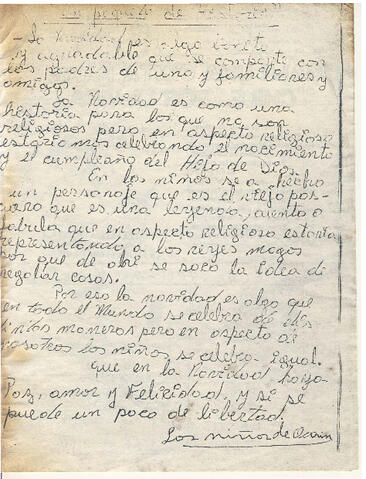 un pequeño de
- La Navidad es algo bonito
y agradable que se comparte con
los padres de uno y familiares y
amigos.
La Navidad es como una
historia para los que no son
religiosos pero en aspecto religioso
estaríamos celebrando el nacimiento
y el cumpleaño del Hijo de Dios.
En los niños se a hecho
un personaje que es el viejo pas-
cuero que es una leyenda, cuento o
fabula que en aspecto religioso estaría
representando a los reyes magos
por que de ahí se sacó la idea de
regalar cosas.
Por eso la navidad es algo que
en todo el Mundo se celebra de dis
tintas maneras pero en aspecto de
nosotros los niños, se celebra igual.
que en la Navidad haya
Paz, amor y Felicidad, y si se
puede un poco de libertad.
Los niños de